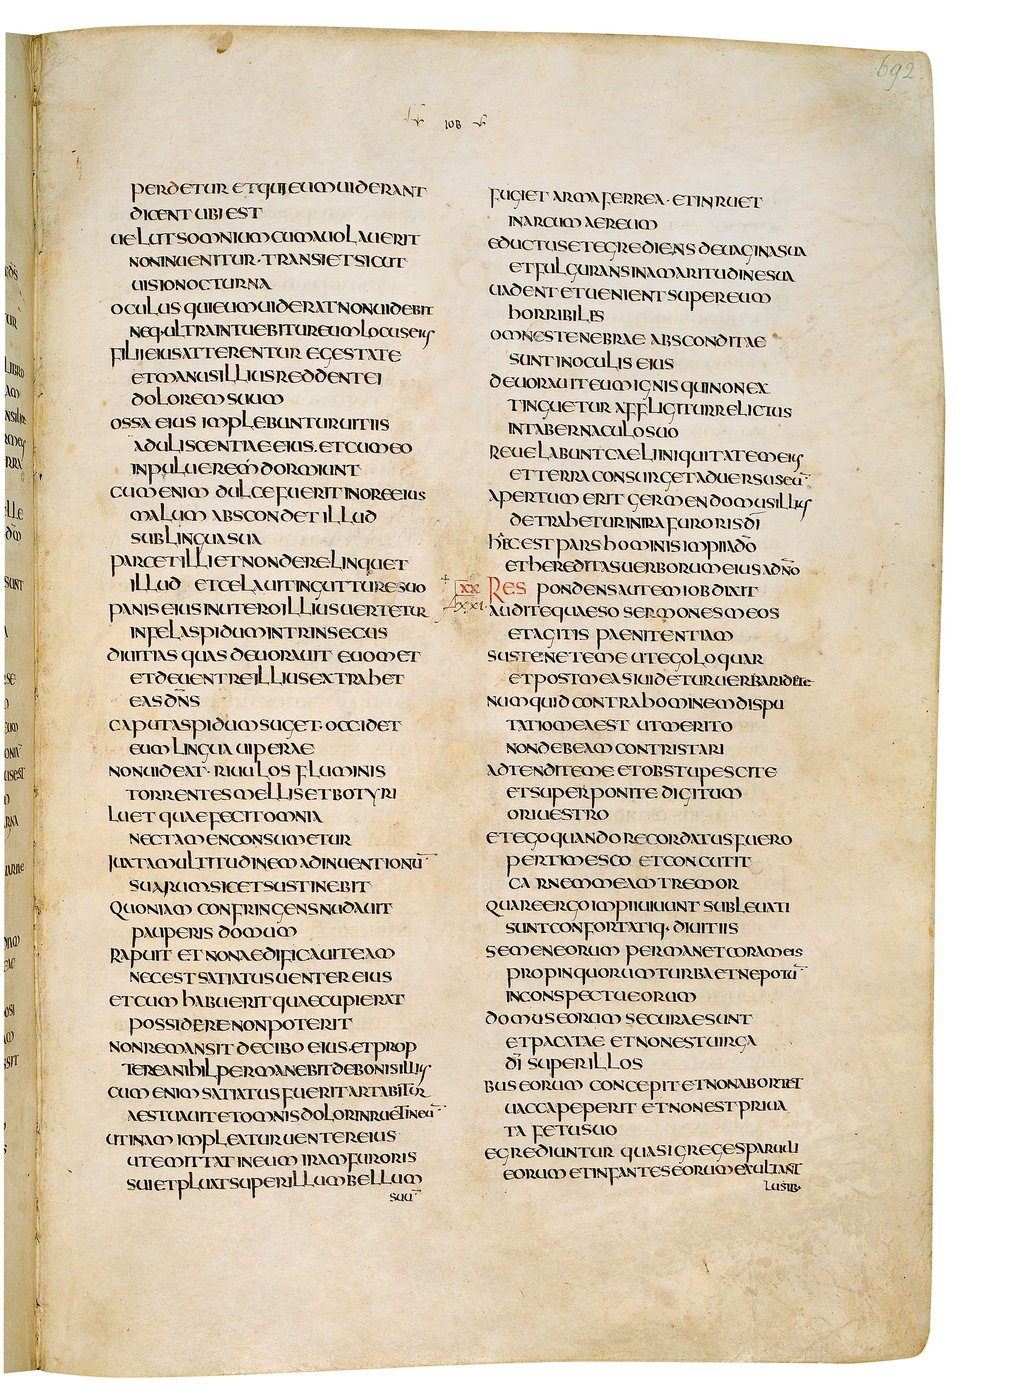 692
IOB
PERDETUR ETQUI EUM UIDERANT
DICENT UBI EST
UELUT SOMNIUM CUM AUOLAUERIT
NON INUENITUR · TRANSIET SICUT
UISIO NOCTURNA
OCULUS QUI EUM UIDERAT NON UIDEBIT
NEQ· ULTRA INTUEBITUR EUM LOCUS EIUS
FILII EIUS ATTERENTUR EGESTATE
ET MANUS ILLIUS REDDENT EI
DOLOREM SUUM
OSSA EIUS IMPLEBUNTUR UITIIS
ADULISCENTIAE EIUS · ET CUM EO
IN PULUEREM DORMIUNT
CUM ENIM DULCE FUERIT IN ORE EIUS
MALUM ABSCONDET ILLUD
SUB LINGUA SUA
PARCET ILLI ET NON DERELINQUET
ILLUD ET CELAUIT IN GUTTURE SUO
PANIS EIUS IN UTERO ILLIUS UERTETUR
IN FEL ASPIDUM INTRINSECUS
DIUITIAS QUAS DEUORAUIT EUOMET
ET DE UENTRE ILLIUS EXTRAHET
EAS DN̄S
CAPUT ASPIDUM SUGET · OCCIDET
EUM LINGUA UIPERAE
NON UIDEAT · RIUULOS FLUMINIS
TORRENTES MELLIS ET BOTYRI
LUET QUAE FECIT OMNIA
NEC TAMEN CONSUMETUR
IUXTA MULTITUDINEM ADINUENTIONŪ
SUARUM SIC ET SUSTINEBIT
QUONIAM CONFRINGENS NUDAUIT
PAUPERIS DOMUM
RAPUIT ET NON AEDIFICAUIT EAM
NEC EST SATIATUS UENTER EIUS
ET CUM HABUERIT QUAE CUPIERAT
POSSIDERE NON POTERIT
NON REMANSIT DE CIBO EIUS · ET PROP
TEREA NIHIL PERMANEBIT DE BONIS ILLIUS
CUM ENIM SATIATUS FUERIT ARTABITUR
AESTUAUIT ET OMNIS DOLOR INRUET IN EŪ
UTINAM IMPLEATUR UENTER EIUS
UT EMITTAT IN EUM IRAM FURORIS
SUI ET PLUAT SUPER ILLUM BELLUM
SUŪ
FUGIET ARMA FERREA · ET INRUET
IN ARCUM AEREUM
EDUCTUS ET EGREDIENS DE UAGINA SUA
ET FULGURANS IN AMARITUDINE SUA
UADENT ET UENIENT SUPER EUM
HORRIBILES
OMNES TENEBRAE ABSCONDITAE
SUNT IN OCULIS EIUS
DEUORAUIT EUM IGNIS QUI NON EX
TINGUETUR AFFLIGITUR RELICTUS
IN TABERNACULO SUO
REUELABUNT CAELI INIQUITATEM EIUS
ET TERRA CONSURGET ADUERSUS EŪ
APERTUM ERIT GERMEN DOMUS ILLIUS
DETRAHETUR IN IRA FURORIS DĪ
HAEC EST PARS HOMINIS IMPII A DŌ
ET HEREDITAS UERBORUM EIUS A DN̄O
XX RESPONDENS AUTEM IOB DIXIT
XXI· AUDITE QUAESO SERMONES MEOS
ET AGITIS PAENITENTIAM
SUSTENETE ME UT EGO LOQUAR
ET POST MEA SI UIDETUR UERBA RIDETE
NUMQUID CONTRA HOMINEM DISPU
TATIO MEA EST UT MERITO
NON DEBEAM CONTRISTARI
ADTENDITE ME ET OBSTUPESCITE
ET SUPERPONITE DIGITUM
ORI UESTRO
ET EGO QUANDO RECORDATUS FUERO
PERTIMESCO ET CONCUTIT
CARNEM MEAM TREMOR
QUARE ERGO IMPII UIUUNT SUBLEUATI
SUNT CONFORTATIQ· DIUITIIS
SEMEN EORUM PERMANET CORAM EIS
PROPINQUORUM TURBA ET NEPOTŪ
IN CONSPECTU EORUM
DOMUS EORUM SECURAE SUNT
ET PACATAE ET NON EST UIRGA
DĪ SUPER ILLOS
BUS EORUM CONCEPIT ET NON ABORTET
UACCA PEPERIT ET NON EST PRIUA
TA FETU SUO
EGREDIUNTUR QUASI GREGES PARUULI
EORUM ET INFANTES EORUM EXULTANT
LUSIB·